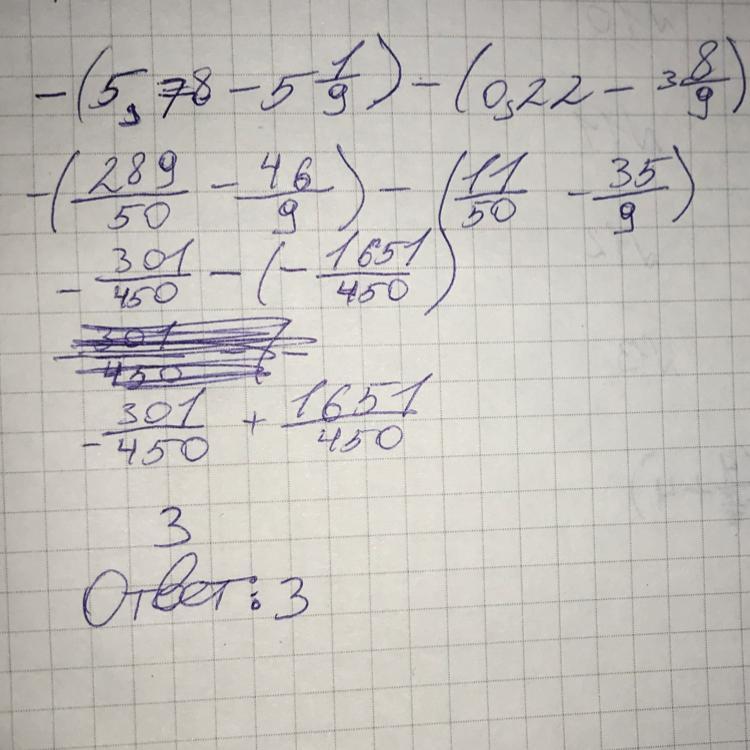 -(5,78 - 5 1/9) - (0,22 - 3 8/9)
-(289/50 - 46/9) - (11/50 - 35/9)
- 301/450 - (- 1651/450)
301/450
- 301/450 + 1651/450
3
Ответ: 3